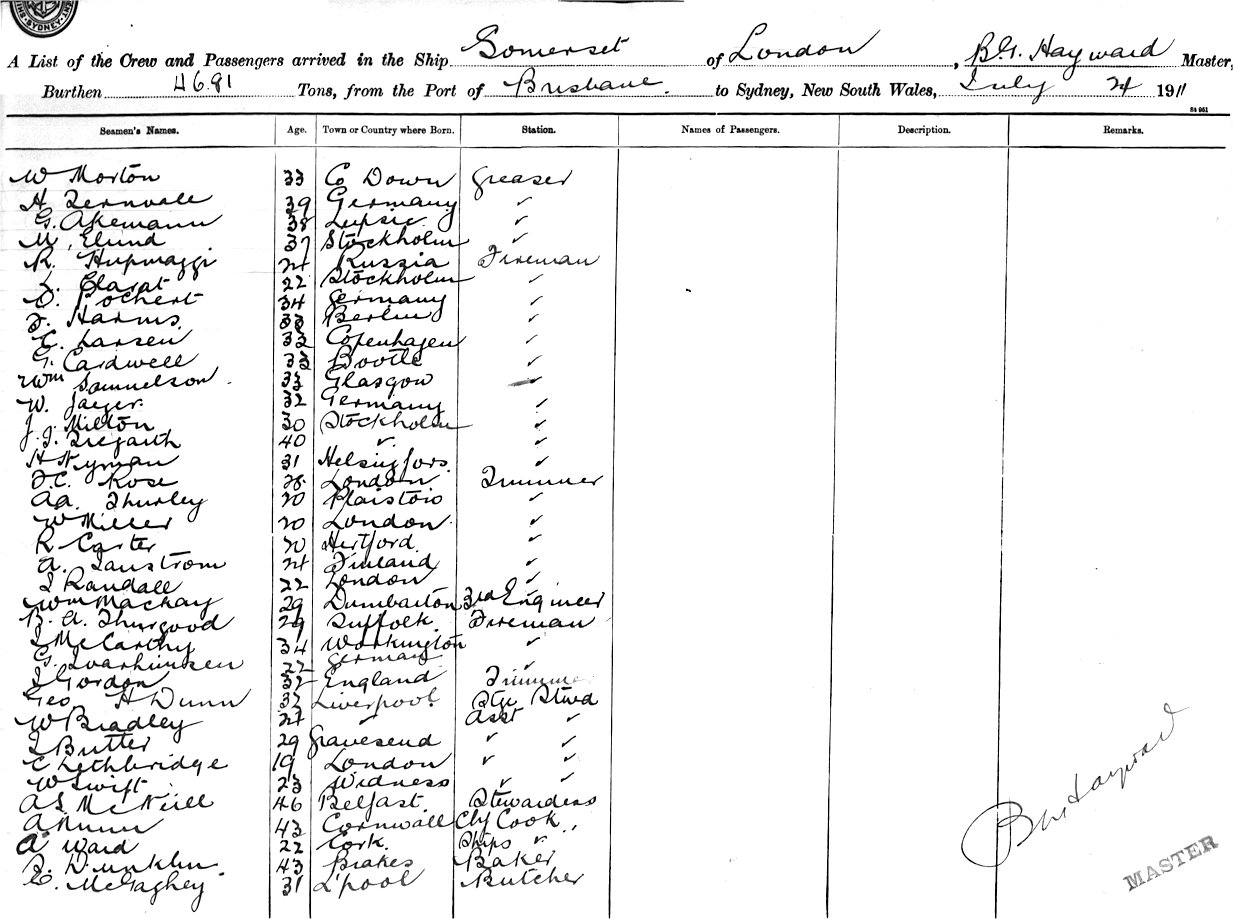 SYDNEY
A List of the Crew and Passengers arrived in the Ship Somerset of London, B.G. Hayward Master,
Burthen 4681 Tons, from the Port of Brisbane. to Sydney, New South Wales, July 24 1911
Seamen's Names. Age. Town or Country where Born. Station. Names of Passengers. Description. Remarks.
W Morton 33 Co Down Greaser
H 39 Germany ✓
G. Akemann 38 Lupsic ✓
M. Elund 37 Stockholm ✓
R. Hupmaggi 24 Russia Fireman
Clarat 22 Stockholm ✓
O. Pochert 34 Germany ✓
F. Harms. 33 Berlin ✓
C. Larsen 33 Copenhagen ✓
G. Cardwell 33 Bootle ✓
Wm Samuelson 33 Glasgow
W. Jaeger. 32 Germany ✓
J. Milton 30 Stockholm ✓
J.J. 40 ✓ ✓
H Nyman 31 Helsingfors. ✓
F.C. Rose London Trimmer
Aa. Thurley 20 Plaistow ✓
W Miller 20 London ✓
R Carter 20 Hertford. ✓
A. Lanstrom 24 Finland ✓
J Randall 22 London ✓
Wm Mackay 29 Dumbarton 3rd Engineer
B. A. Thurgood 29 Suffolk. Fireman
J McCarthy 34 Workington ✓
G. 22 Germany ✓
J Gordon 32 England Trimmer
Geo H Dunn 32 Liverpool Stwd
W Bradley 24 ✓ Asst ✓
J Butter 29 Gravesend ✓ ✓
C Lethbridge 19 London ✓ ✓
W Swift 23 Widness ✓ ✓
A S McNeill 46 Belfast Stewardess
A Nunn 43 Cornwall Chf Cook
A Ward 22 Cork. Ships ✓
43 Baker
C. McGaghey 31 L'pool Butcher
B G Hayward
MASTER